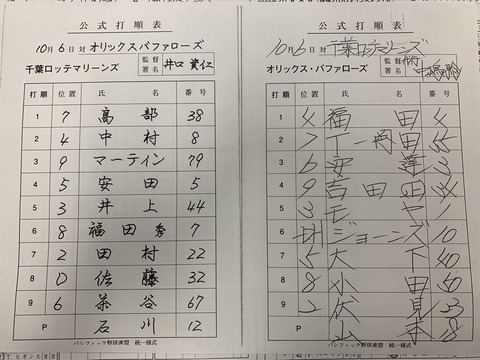 公式打順表
10月6日 対 オリックスバファローズ
千葉ロッテマリーンズ 監督署名 井口 資仁
打順 位置 氏 名 番号
1 7 高部 38
2 4 中村 8
3 9 マーティン 79
4 5 安田 5
5 3 井上 44
6 8 福田秀 7
7 2 田村 22
8 D 佐藤 32
9 6 茶谷 67
P 石川 12
パシフィック野球連盟 統一様式
公式打順表
10月6日 対 千葉ロッテマリーンズ
オリックス・バファローズ 監督署名
打順 位置 氏 名 番号
1 4 福田 4
2 7 T-岡田 55
3 6 安達 3
4 9 吉田正 34
5 3 モヤ 1
6 DH ジョーンズ 10
7 5 大下 40
8 8 小田 50
9 2 伏見 23
P 山本 18
パシフィック野球連盟 統一様式